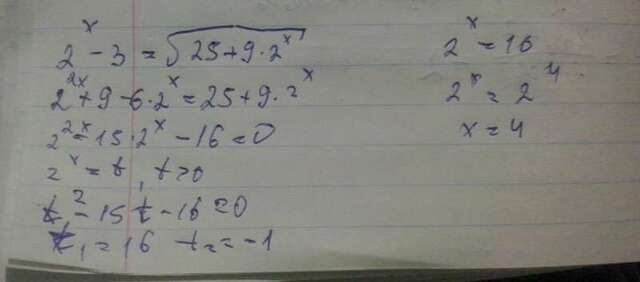 2^x - 3 = √(25 + 9 · 2^x)
2^2x + 9 - 6 · 2^x = 25 + 9 · 2^x
2^2x - 15 · 2^x - 16 = 0
2^x = t, t > 0
t^2 - 15t - 16 = 0
t₁ = 16 t₂ = -1
2^x = 16
2^x = 2^4
x = 4